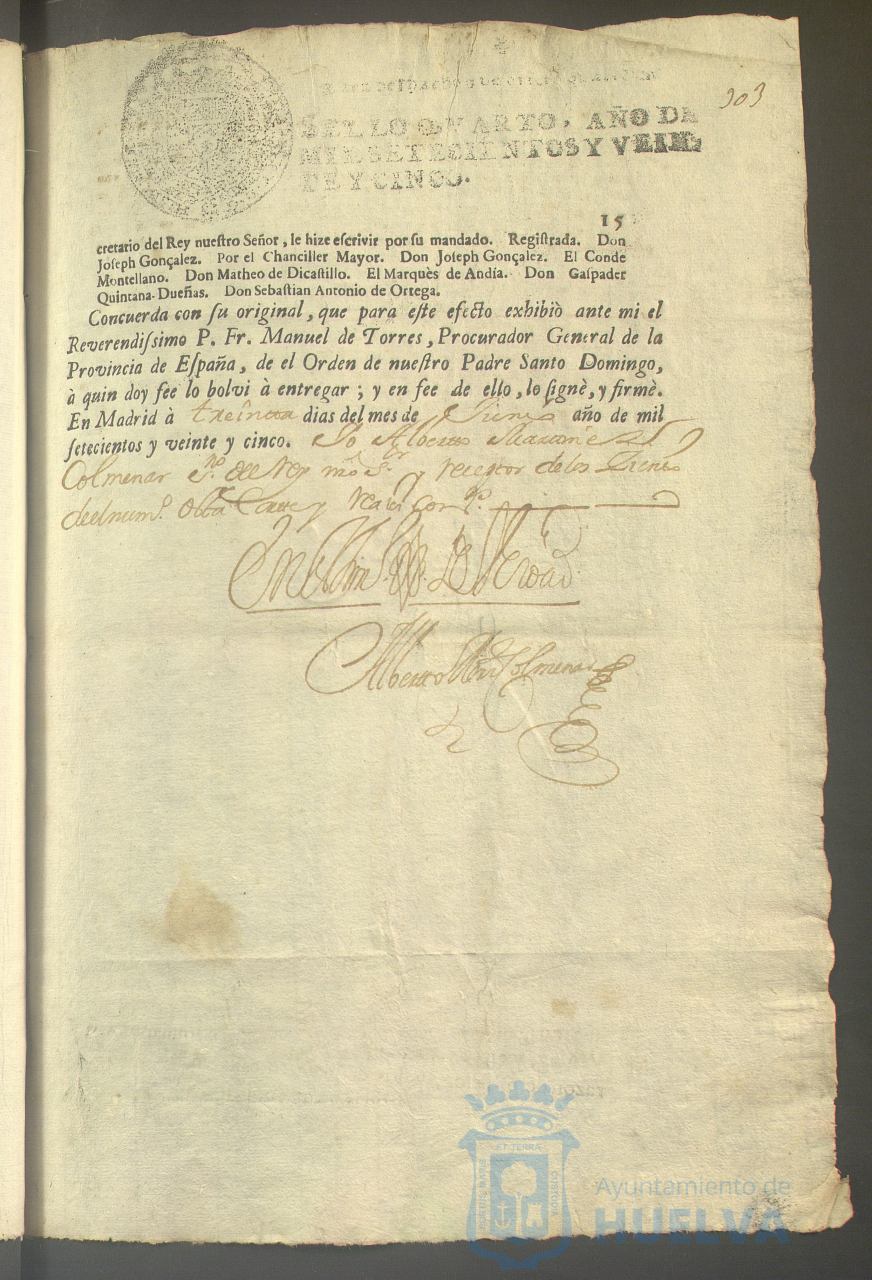 303
SELLO QVARTO, AÑO DE
MIL SETECIENTOS Y VEIN-
TE Y CINCO.
15
cretario del Rey nueſtro Señor, le hize eſcrivir por ſu mandado. Regiſtrada. Don
Joſeph Gonçalez. Por el Chanciller Mayor. Don Joſeph Gonçalez. El Conde
Montellano. Don Matheo de Dicaſtillo. El Marquès de Andía. Don Gaſpader
Quintana-Dueñas. Don Sebaſtian Antonio de Ortega.
Concuerda con ſu original, que para eſte efecto exhibiò ante mi el
Reverendiſsimo P. Fr. Manuel de Torres, Procurador General de la
Provincia de Eſpaña, de el Orden de nueſtro Padre Santo Domingo,
à quin doy fee lo bolvi à entregar; y en fee de ello, lo ſignè, y firmè.
En Madrid à treinta dias del mes de año de mil
ſetecientos y veinte y cinco. Yo Alberto
Colmenar
Alberto Colmenar
ET TERRÆ
PORTUS MARIS
CUSTODIA
Ayuntamiento de
HUELVA